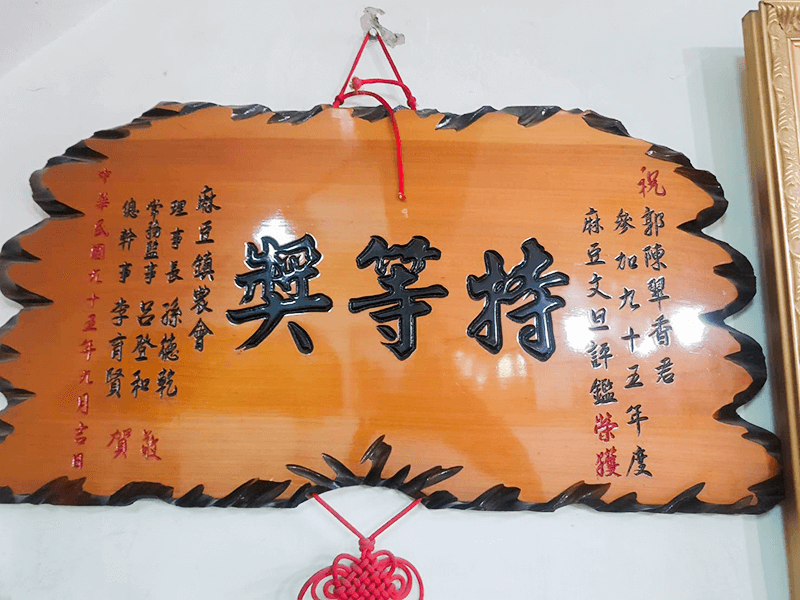 祝
郭陳翠香君
參加九十五年度
麻豆文旦評鑑榮獲
特等獎
麻豆鎮農會
理事長 孫德乾
常務監事 呂登和
總幹事 李育賢
敬賀
中華民國九十五年九月吉日